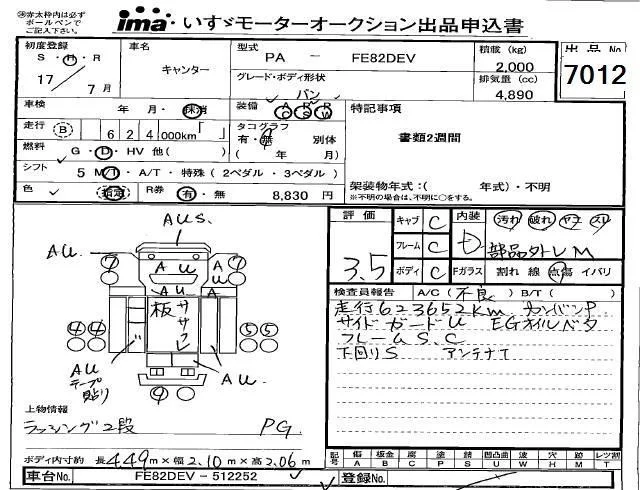 ※赤太枠内は必ず
ボールペンで
ご記入下さい。
ima いすゞモーターオークション出品申込書
初度登録 S・H・R 17 7月
車名 キャンター
型式 PA － FE82DEV
グレード・ボディ形状 バン
積載 (kg) 2,000
排気量 (cc) 4,890
出品No 7012
車検 年 月・抹消
装備 A R R C S W
特記事項
書類2週間
走行 B 6 2 4 000km
タコグラフ 有・無 別体 ( 年 月)
燃料 G・D・HV 他( )
シフト 5 M/T・A/T・特殊 (2ペダル・3ペダル)
色 指定 R券 有・無 8,830 円
架装物年式:( 年式)・不明
※不明の場合は、不明に○をする。
評価 3.5
キャブ C
フレーム C
ボディ C
内装 D 汚れ 破れ ヤニ スレ
部品外レ M
Fガラス 割れ 線 点傷 イバリ
検査員報告 A/C (不良) B/T ( )
走行623652km カンバンP
サイドガードU EGオイルベタ
フレームS,C
下回りS アンテナT
AUS.
AU
AU
AU
AU
AU
AU
7 7
板 ササクレ
4 4 5 5
AU
テープ
貼り
AU
9
上物情報
ラッシング2段 PG
ボディ内寸約 長4.49m×幅2.10m×高2.06m
記号 傷 A 板金 B 腐 C 塗 P 錆 S 凹凸曲 U 波 W 穴 H 跡 M レツ割 T
車台No. FE82DEV－512252
登録No.